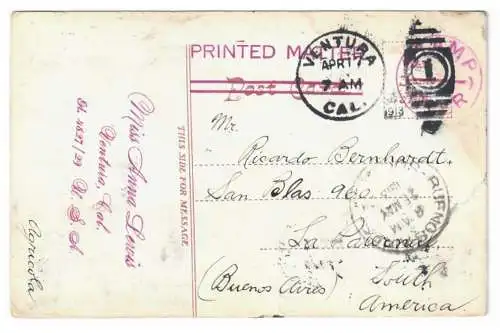 PRINTED MATTER
Post Card
VENTURA
APR 17
7 AM
CAL.
1
1913
THIS SIDE FOR MESSAGE
Miss Anna Lewis
Ventura, Cal.
U. S. A.
Agricola
Mr.
Ricardo Bernhardt.
San Blas 960
La Paternal
(Buenos Aires) South
America.
BUENOS
MAY